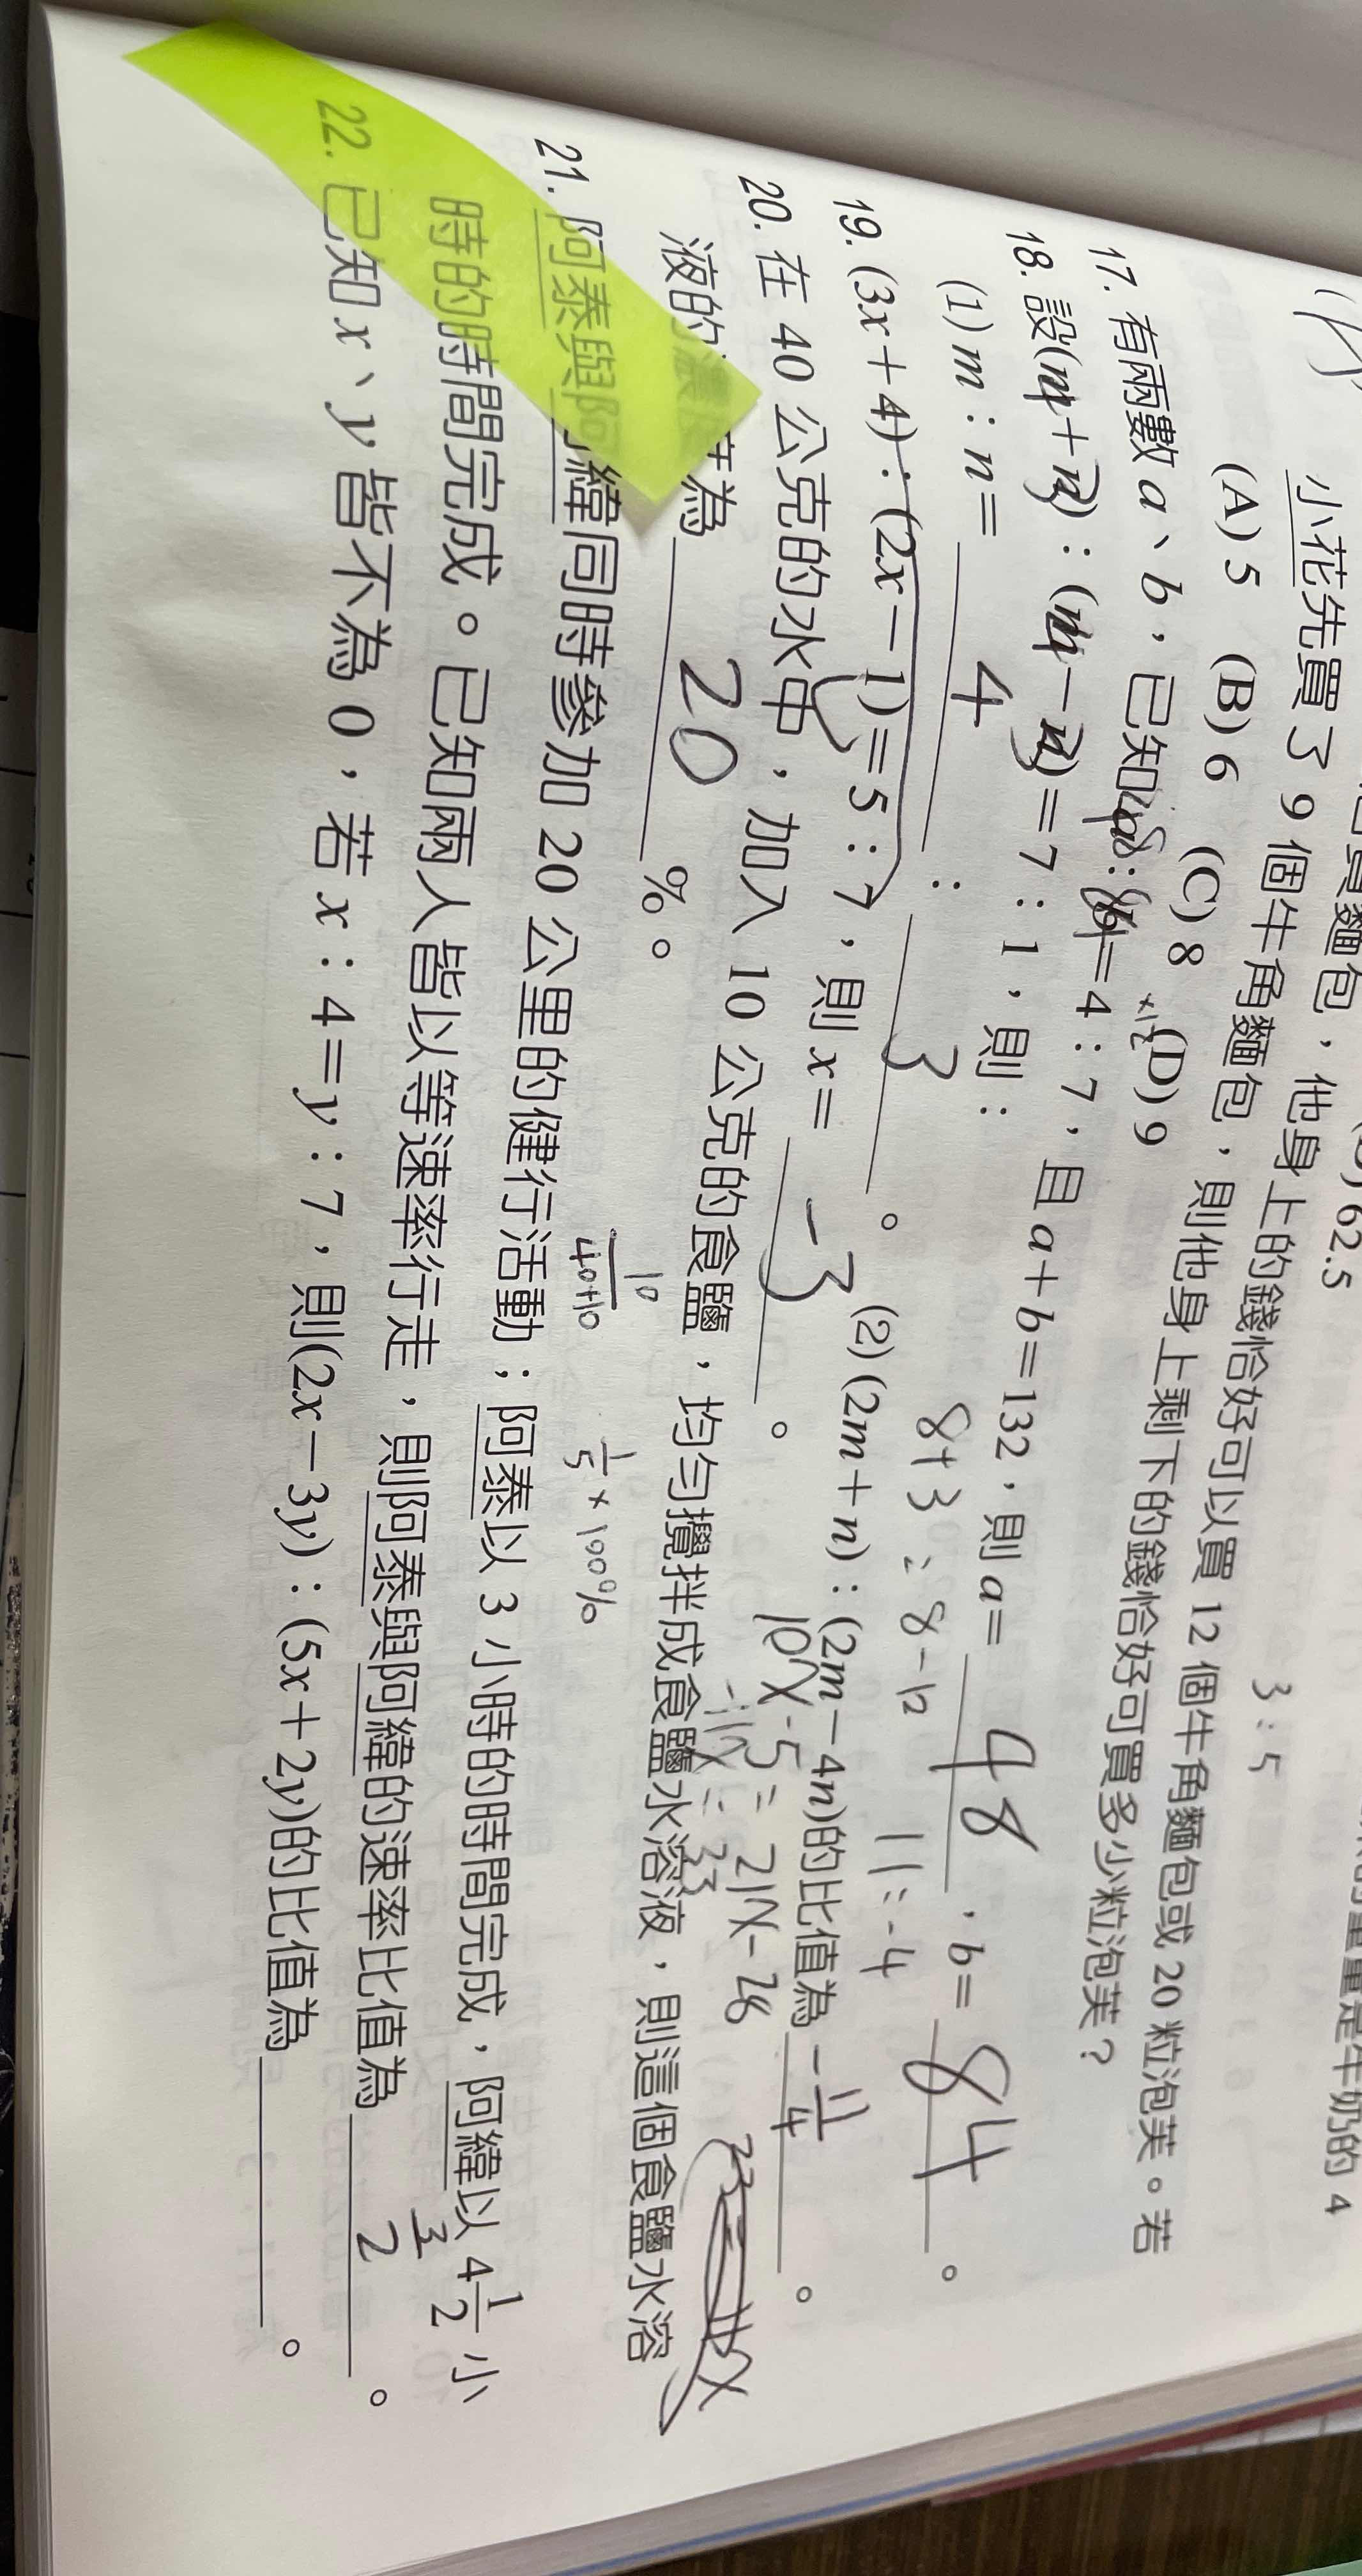 62.5
量是牛奶的 4
麵包，他身上的錢恰好可以買 12 個牛角麵包或 20 粒泡芙。若
小花先買了 9 個牛角麵包，則他身上剩下的錢恰好可買多少粒泡芙？
3:5
(A) 5 (B) 6 (C) 8 (D) 9
×12
17. 有兩數 a、b，已知 a：b＝4：7，且 a＋b＝132，則 a＝ 48 ，b＝ 84 。
48
18. 設(m＋n)：(m－n)＝7：1，則：
8+3:8-12 11:-4
(1) m：n＝ 4 ： 3 。 (2) (2m＋n)：(2m－4n)的比值為 -11/4 。
19. (3x＋4)：(2x－1)＝5：7，則 x＝ -3 。
10x-5=21x-28
-11x=33
20. 在 40 公克的水中，加入 10 公克的食鹽，均勻攪拌成食鹽水溶液，則這個食鹽水溶
液的濃度為 20 %。
10/40+10 1/5×100%
21. 阿泰與阿緯同時參加 20 公里的健行活動：阿泰以 3 小時的時間完成，阿緯以 4 1/2 小
時的時間完成。已知兩人皆以等速率行走，則阿泰與阿緯的速率比值為 3/2 。
22. 已知 x、y 皆不為 0，若 x：4＝y：7，則(2x－3y)：(5x＋2y)的比值為 。